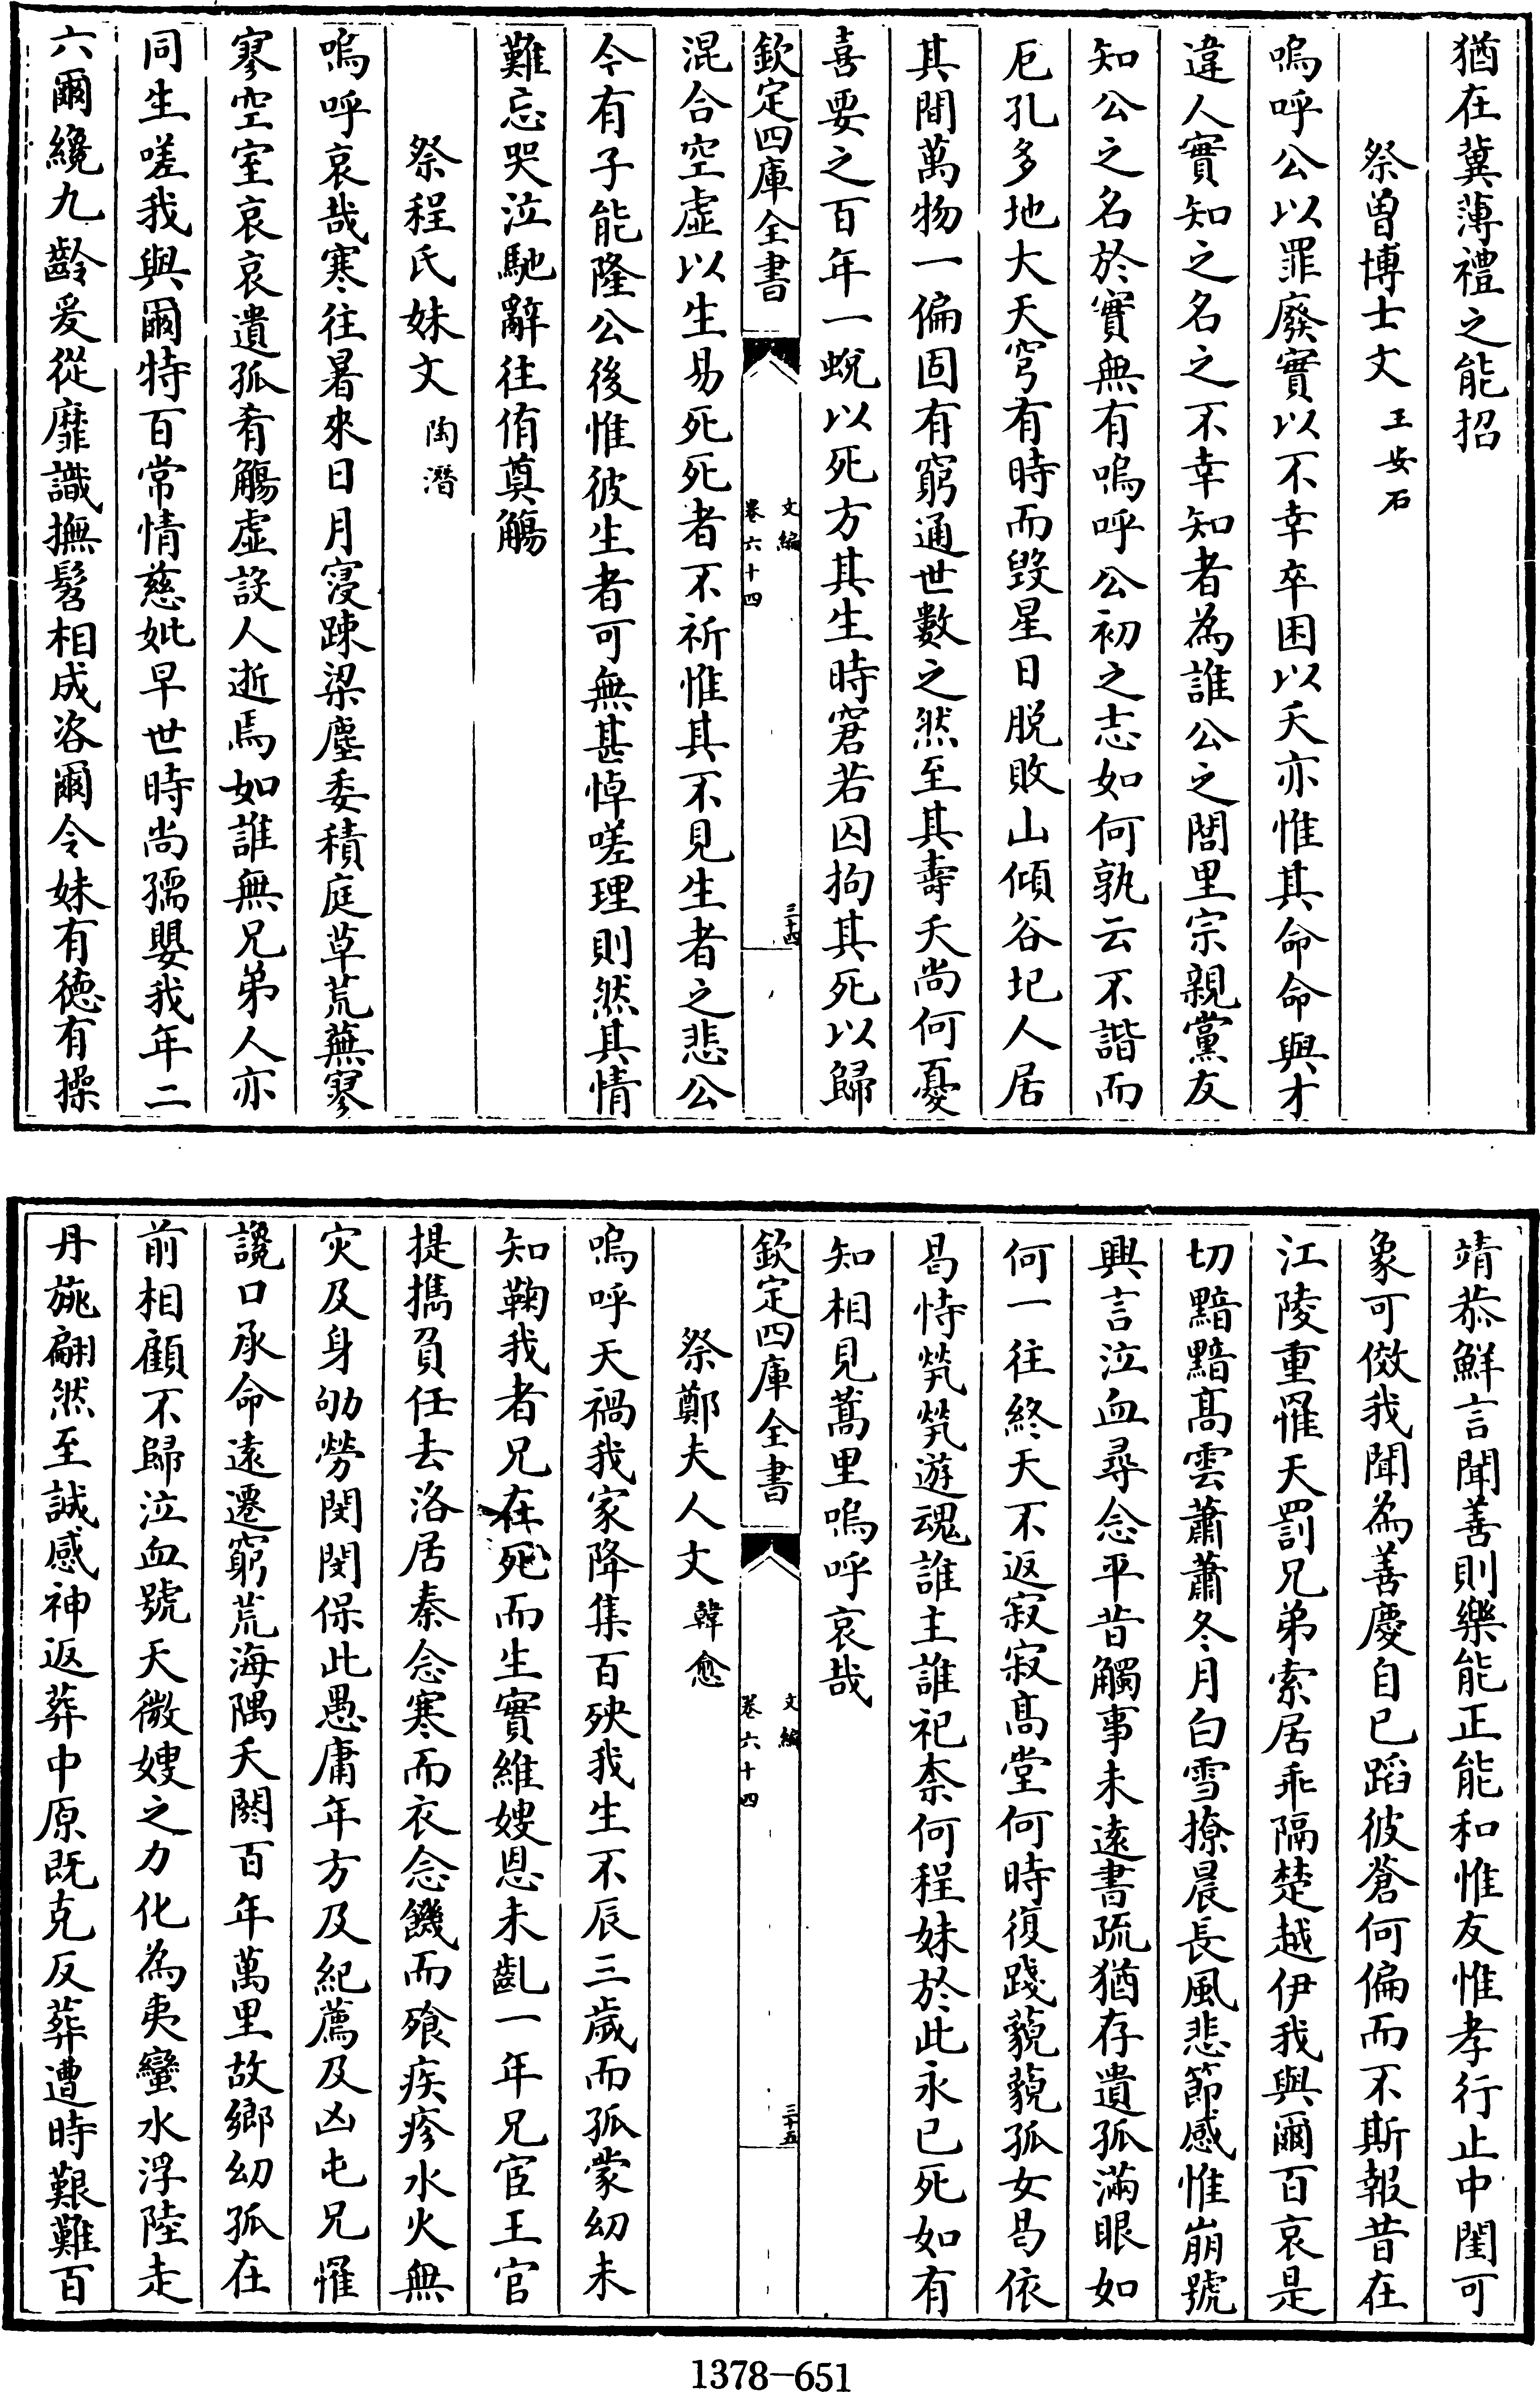 猶在冀薄禮之能招
祭曾博士文王安石
嗚呼公以罪廢實以不幸卒困以夭亦惟其命命與才
違人實知之名之不幸知者為誰公之閭里宗親黨友
知公之名於實無有嗚呼公初之志如何孰云不諧而
厄孔多地大天穹有時而毀星日脫敗山傾谷圮人居
其間萬物一偏固有窮通世數之然至其壽夭尚何憂
喜要之百年一蛻以死方其生時窘若囚拘其死以歸
欽定四庫全書
文編
卷六十四
三十四
混合空虛以生易死死者不祈惟其不見生者之悲公
今有子能隆公後惟彼生者可無甚悼嗟理則然其情
難忘哭泣馳辭往侑奠觴
祭程氏妹文陶潛
嗚呼哀哉寒往暑來日月寖踈梁塵委積庭草荒蕪寥
寥空室哀哀遺孤肴觴虛設人逝焉如誰無兄弟人亦
同生嗟我與爾特百常情慈妣早世時尚孺嬰我年二
六爾纔九齡爰從靡識撫髫相成咨爾令妹有德有操
靖恭鮮言聞善則樂能正能和惟友惟孝行止中閨可
象可傚我聞為善慶自已蹈彼蒼何偏而不斯報昔在
江陵重罹天罰兄弟索居乖隔楚越伊我與爾百哀是
切黯黯髙雲蕭蕭冬月白雪撩晨長風悲節感惟崩號
興言泣血尋念平昔觸事未遠書疏猶存遺孤滿眼如
何一往終天不返寂寂髙堂何時復踐藐藐孤女曷依
曷恃煢煢遊魂誰主誰祀柰何程妹於此永已死如有
知相見蒿里嗚呼哀哉
欽定四庫全書
文編
卷六十四
三十五
祭鄭夫人文韓愈
嗚呼天禍我家降集百殃我生不辰三歲而孤蒙幼未
知鞠我者兄在死而生實維嫂恩未齓一年兄宦王官
提攜負任去洛居秦念寒而衣念饑而飱疾疹水火無
灾及身劬勞閔閔保此愚庸年方及紀薦及凶屯兄罹
讒口承命遠遷窮荒海隅夭閼百年萬里故鄉幼孤在
前相顧不歸泣血號天微嫂之力化為夷蠻水浮陸走
丹旐翩然至誠感神返葬中原既克反葬遭時艱難百
1378-651